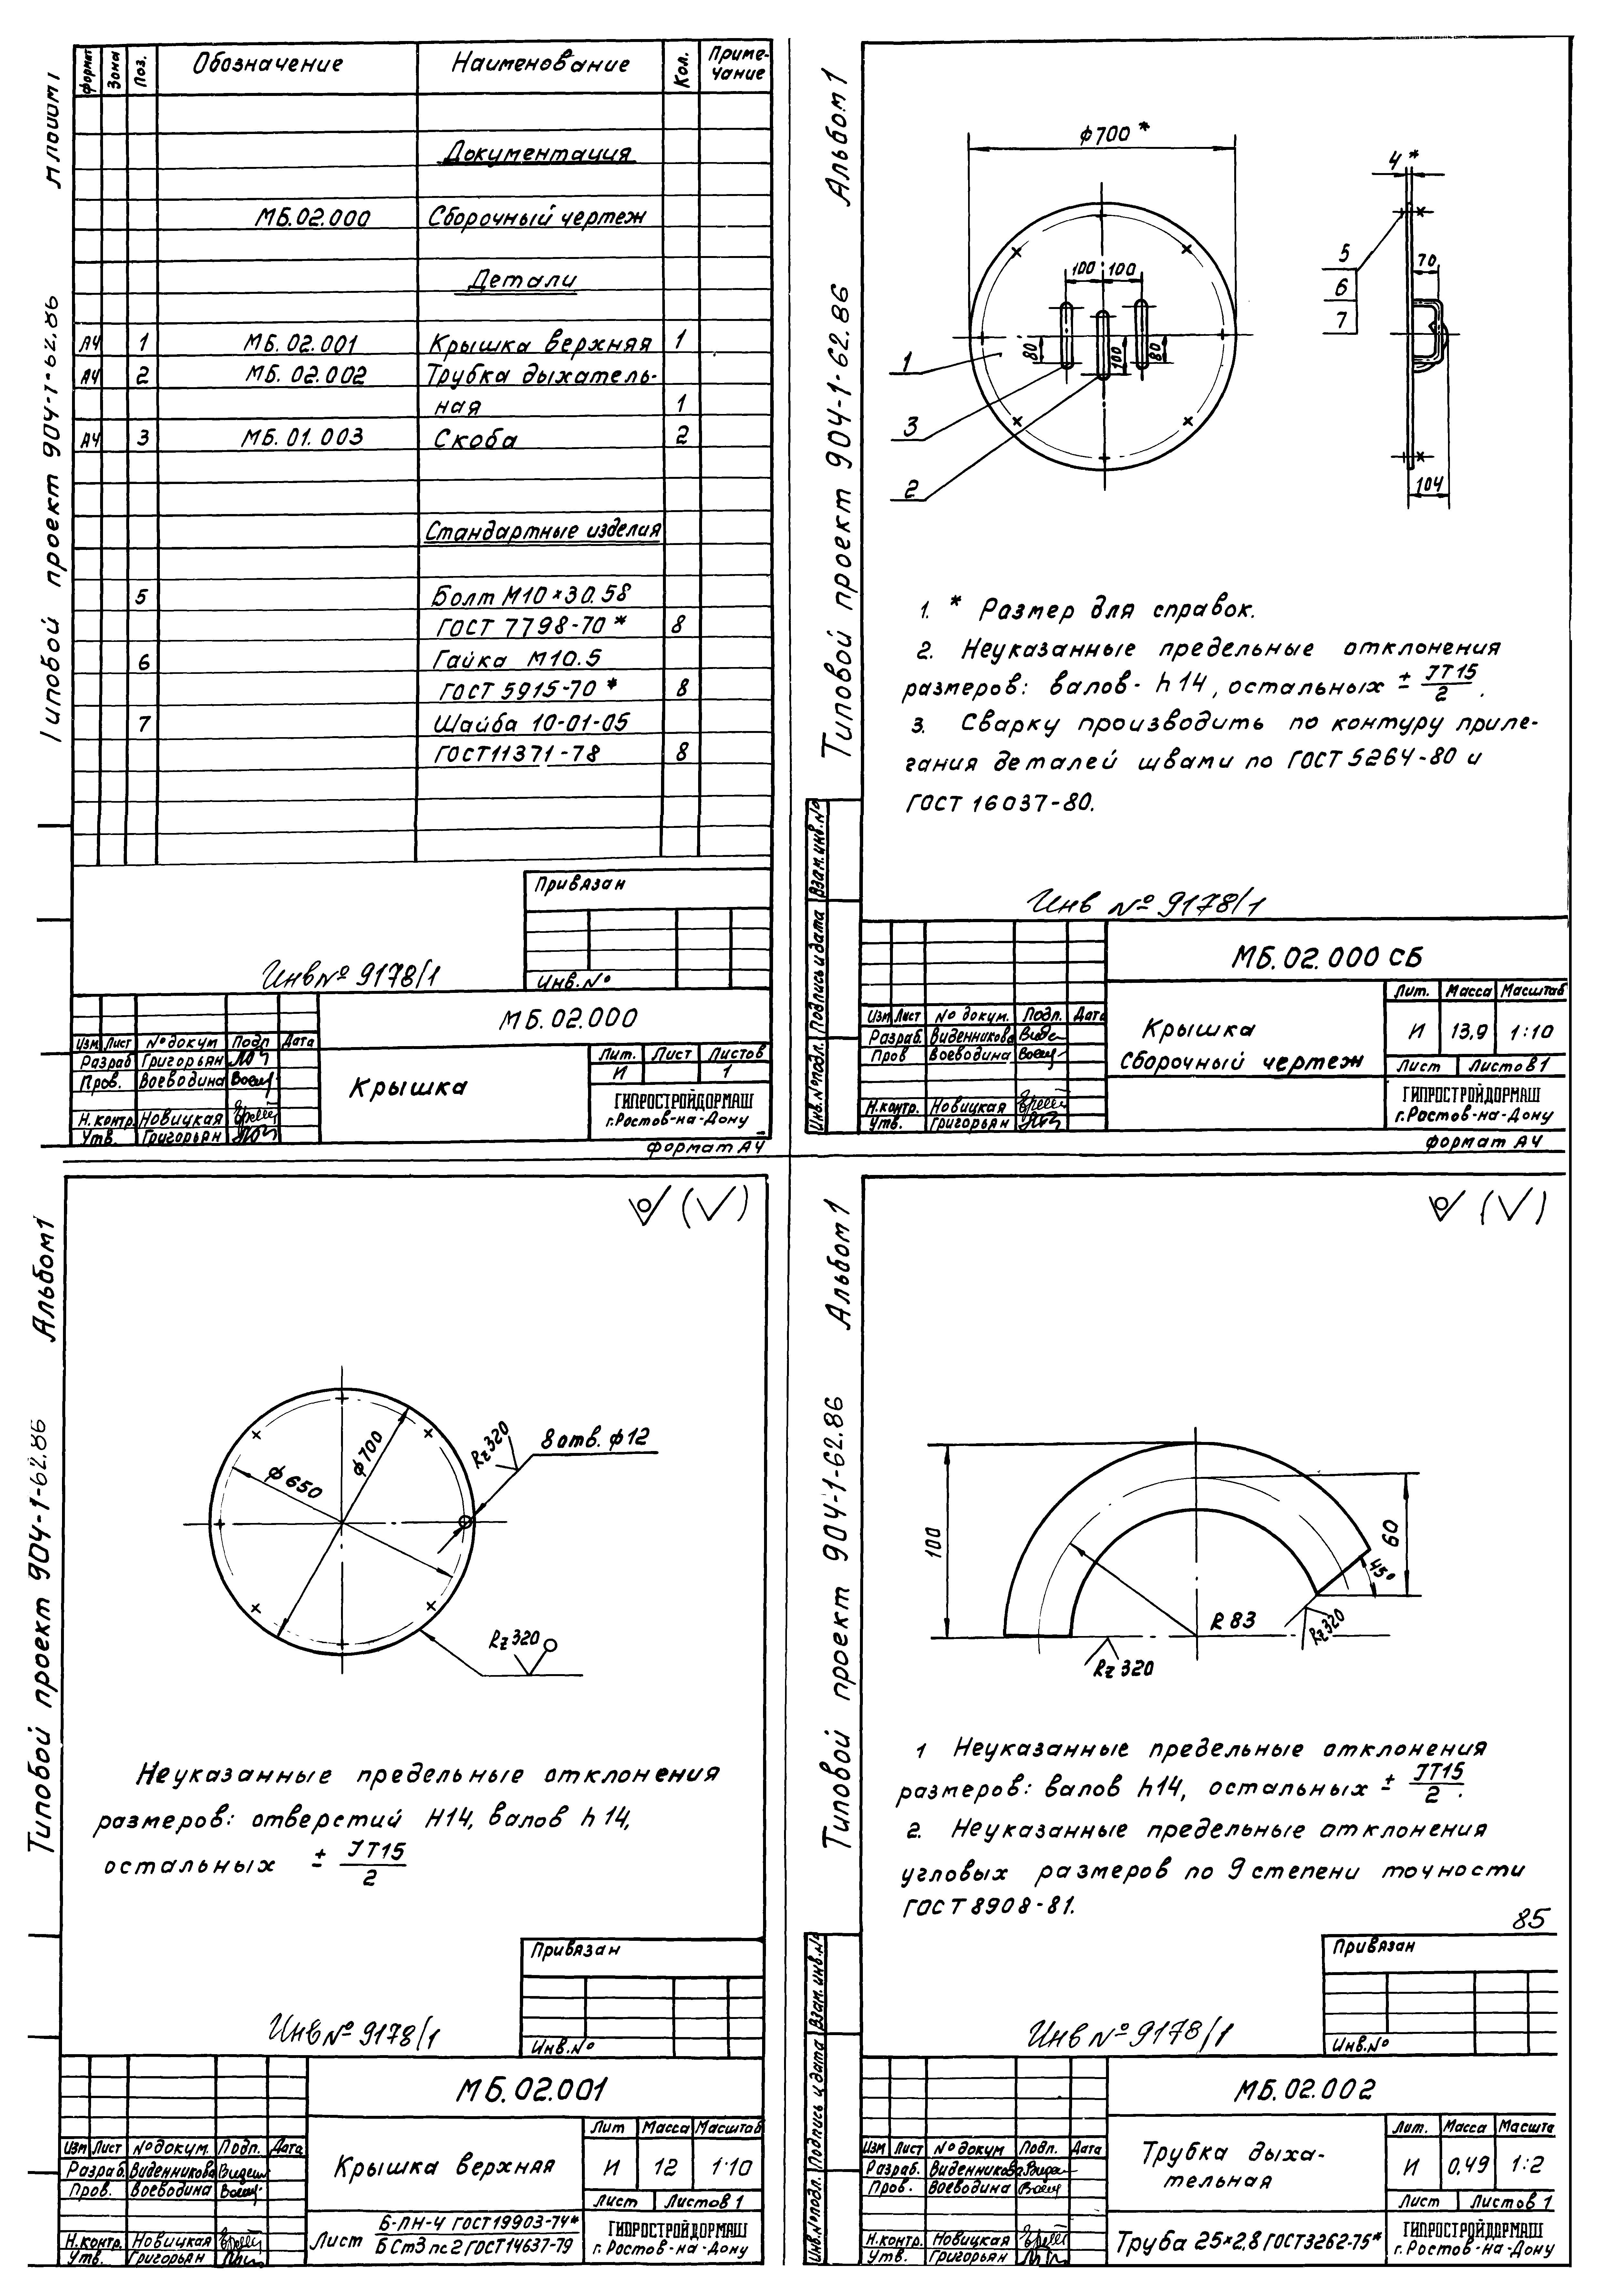 Альбом 1
Типовой проект 904-1-62.86
формат Зона Поз. Обозначение Наименование Кол. Приме-
чание
Документация
МБ.02.000 Сборочный чертеж
Детали
А4 1 МБ.02.001 Крышка верхняя 1
А4 2 МБ.02.002 Трубка дыхатель-
ная 1
А4 3 МБ.01.003 Скоба 2
Стандартные изделия
5 Болт М10×30.58
ГОСТ 7798-70* 8
6 Гайка М10.5
ГОСТ 5915-70* 8
7 Шайба 10-01-05
ГОСТ 11371-78 8
Привязан
Инв.№
Инв № 9178/1
МБ.02.000
Изм Лист № докум Подп Дата
Разраб Григорьян
Пров. Воеводина
Н.контр. Новицкая
Утв. Григорьян
Крышка
Лит. Лист Листов
И 1
ГИПРОСТРОЙДОРМАШ
г.Ростов-на-Дону
формат А4
Альбом 1
Типовой проект 904-1-62.86
ф700*
4*
100 100
70
5
6
7
80
100
80
1
3
2
104
1. * Размер для справок.
2. Неуказанные предельные отклонения
размеров: валов- h14, остальных ± JT15/2.
3. Сварку производить по контуру приле-
гания деталей швами по ГОСТ 5264-80 и
ГОСТ 16037-80.
Инв № 9178/1
Инв.№ подл. Подпись и дата Взам.инв.№
МБ.02.000 СБ
Изм Лист № докум. Подп. Дата
Разраб. Виденникова
Пров Воеводина
Н.контр. Новицкая
Утв. Григорьян
Крышка
Сборочный чертеж
Лит. Масса Масштаб
И 13,9 1:10
Лист Листов 1
ГИПРОСТРОЙДОРМАШ
г.Ростов-на-Дону
формат А4
Альбом 1
Типовой проект 904-1-62.86
(√)
Rz320
8 отв. ф12
ф700
ф650
Rz320
Неуказанные предельные отклонения
размеров: отверстий Н14, валов h14,
остальных ± JT15/2
Привязан
Инв.№
Инв № 9178/1
МБ.02.001
Изм Лист № докум. Подп. Дата
Разраб. Виденникова
Пров. Воеводина
Н.контр. Новицкая
Утв. Григорьян
Крышка верхняя
Лит Масса Масштаб
И 12 1:10
Лист Листов 1
Лист Б-ПН-4 ГОСТ 19903-74*
БСт3пс2 ГОСТ 14637-79
ГИПРОСТРОЙДОРМАШ
г. Ростов-на-Дону
Альбом 1
Типовой проект 904-1-62.86
(√)
100
60
45°
R 83
Rz320
Rz320
1 Неуказанные предельные отклонения
размеров: валов h14, остальных ± JT15/2.
2. Неуказанные предельные отклонения
угловых размеров по 9 степени точности
ГОСТ 8908-81.
85
Привязан
Инв.№
Инв № 9178/1
Инв.№ подл. Подпись и дата Взам.инв.№
МБ.02.002
Изм Лист № докум Подп. Дата
Разраб. Виденникова
Пров. Воеводина
Н.контр. Новицкая
Утв. Григорьян
Трубка дыха-
тельная
Лит. Масса Масшта
И 0,49 1:2
Лист Листов 1
Труба 25×2,8 ГОСТ 3262-75*
ГИПРОСТРОЙДОРМАШ
г. Ростов-на-Дону